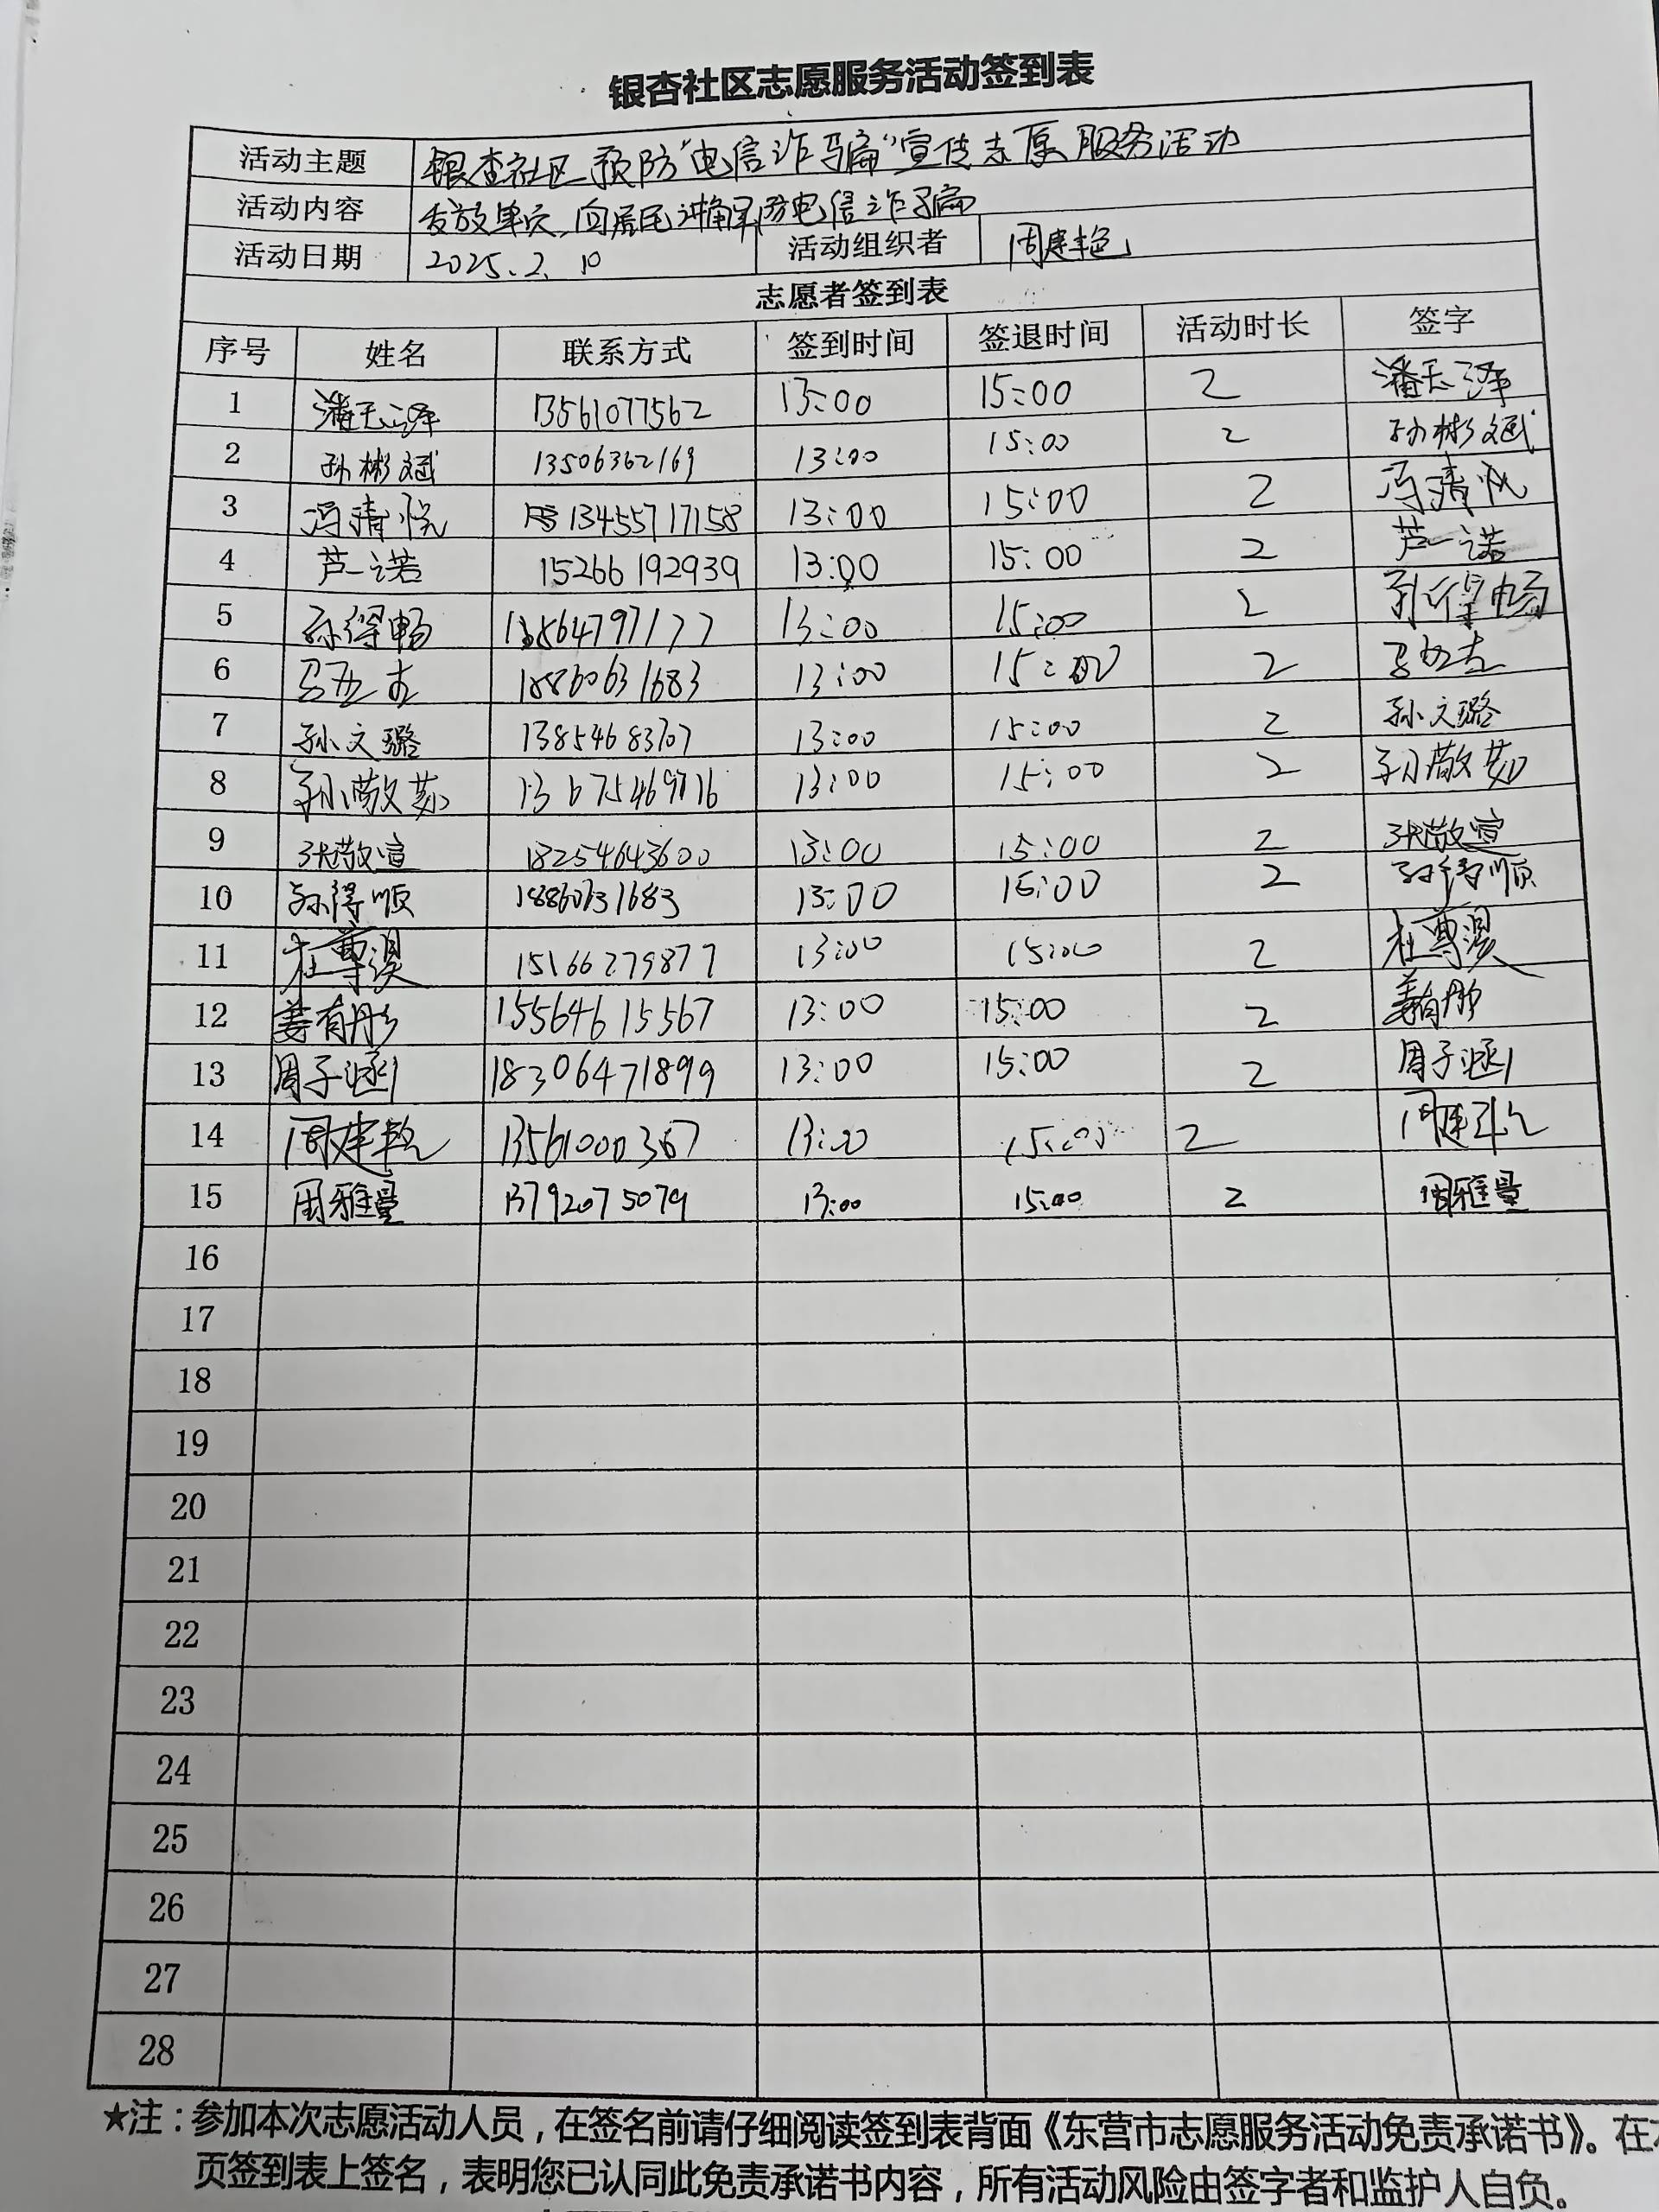 银杏社区志愿服务活动签到表
活动主题 银杏社区预防“电信诈骗”宣传志愿服务活动
活动内容 发放单页、向居民讲解防电信诈骗
活动日期 2025.2.10 活动组织者 周建艳
志愿者签到表
序号 姓名 联系方式 签到时间 签退时间 活动时长 签字
1 13561077562 13:00 15:00 2
2 孙彬斌 13506362169 13:00 15:00 2 孙彬斌
3 冯清悦 13455717158 13:00 15:00 2 冯清悦
4 芦一诺 15266192939 13:00 15:00 2 芦一诺
5 孙得畅 13:00 15:00 2 孙得畅
6 18860631683 13:00 15:00 2
7 孙文璐 13854683707 13:00 15:00 2 孙文璐
8 孙敬茹 13:00 15:00 2 孙敬茹
9 张敬煊 18254643600 13:00 15:00 2 张敬煊
10 孙得顺 18860631683 13:00 15:00 2 孙得顺
11 杜尊湜 15166279877 13:00 15:00 2 杜尊湜
12 姜有彤 15564615567 13:00 15:00 2 姜有彤
13 周子涵 18306471899 13:00 15:00 2 周子涵
14 周建艳 13561000367 13:00 15:00 2 周建艳
15 周雅量 13792075079 13:00 15:00 2 周雅量
16
17
18
19
20
21
22
23
24
25
26
27
28
★注：参加本次志愿活动人员，在签名前请仔细阅读签到表背面《东营市志愿服务活动免责承诺书》。在
页签到表上签名，表明您已认同此免责承诺书内容，所有活动风险由签字者和监护人自负。